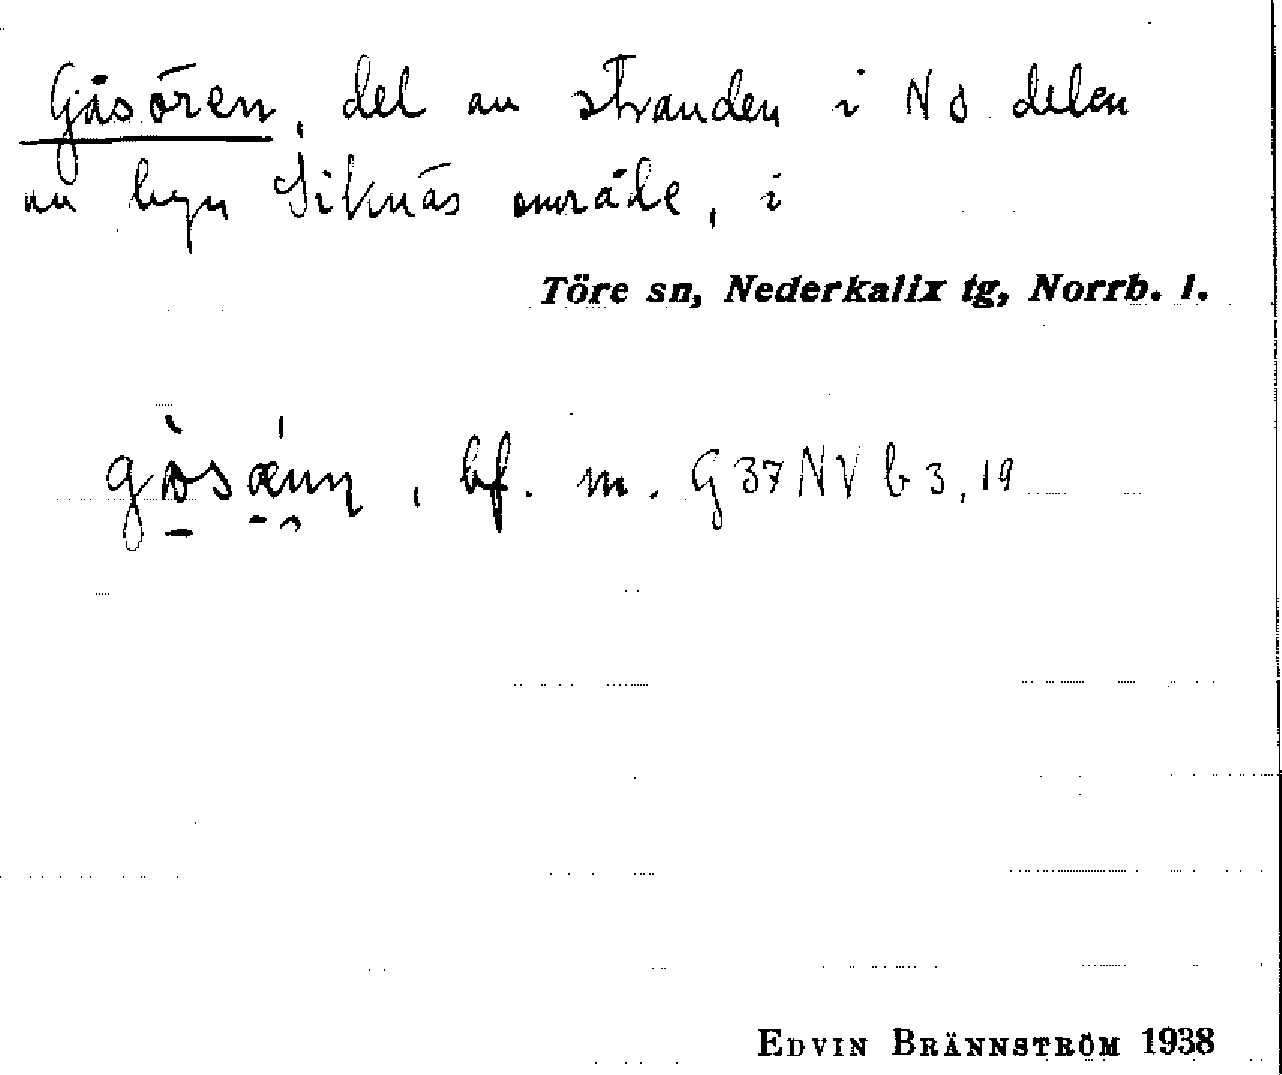 Gåsören, del av stranden i NO delen
av byn Siknäs område, i
Töre sn, Nederkalix tg, Norrb. l.
bf. m. G 37 NV b 3, 19
EDVIN BRÄNNSTRÖM 1938